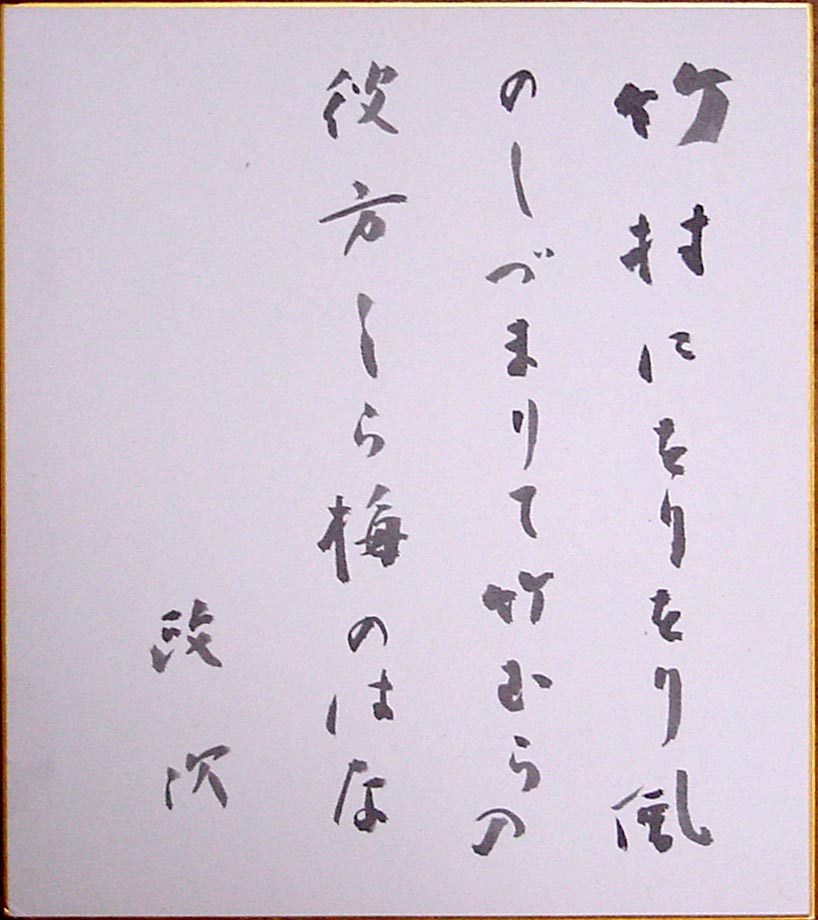 竹村にをりをり風
のしづまりて竹むらの
彼方しら梅のはな
政次